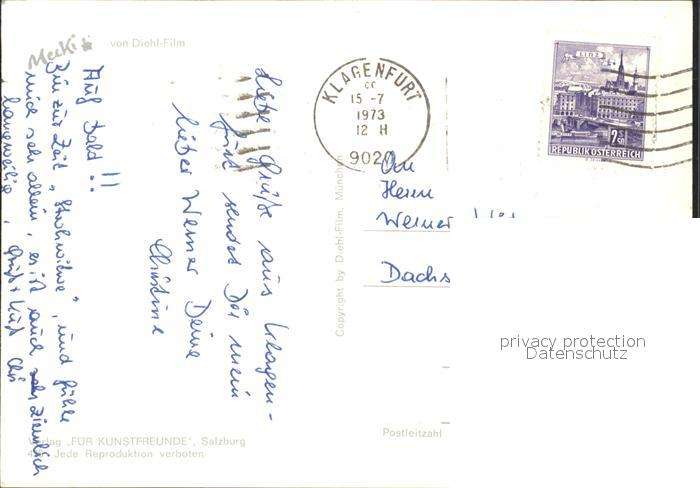 Mecki
von Diehl-Film
Auf bald !!
Bin zur Zeit „Strohwitwe", und fühle
mich sehr allein, es ist auch ziemlich
langweilig,
Gruß + Kuß Chri
Liebe Grüße aus Klagen-
furt sendet Dir mein
lieber Werner Deine
Christine
KLAGENFURT
cc
15 -7
1973
12 H
9020
LINZ
REPUBLIK ÖSTERREICH
An
Herrn
Werner
Dachs
Copyright by Diehl-Film, München
Postleitzahl
Verlag „FÜR KUNSTFREUNDE", Salzburg
Jede Reproduktion verboten
privacy protection
Datenschutz